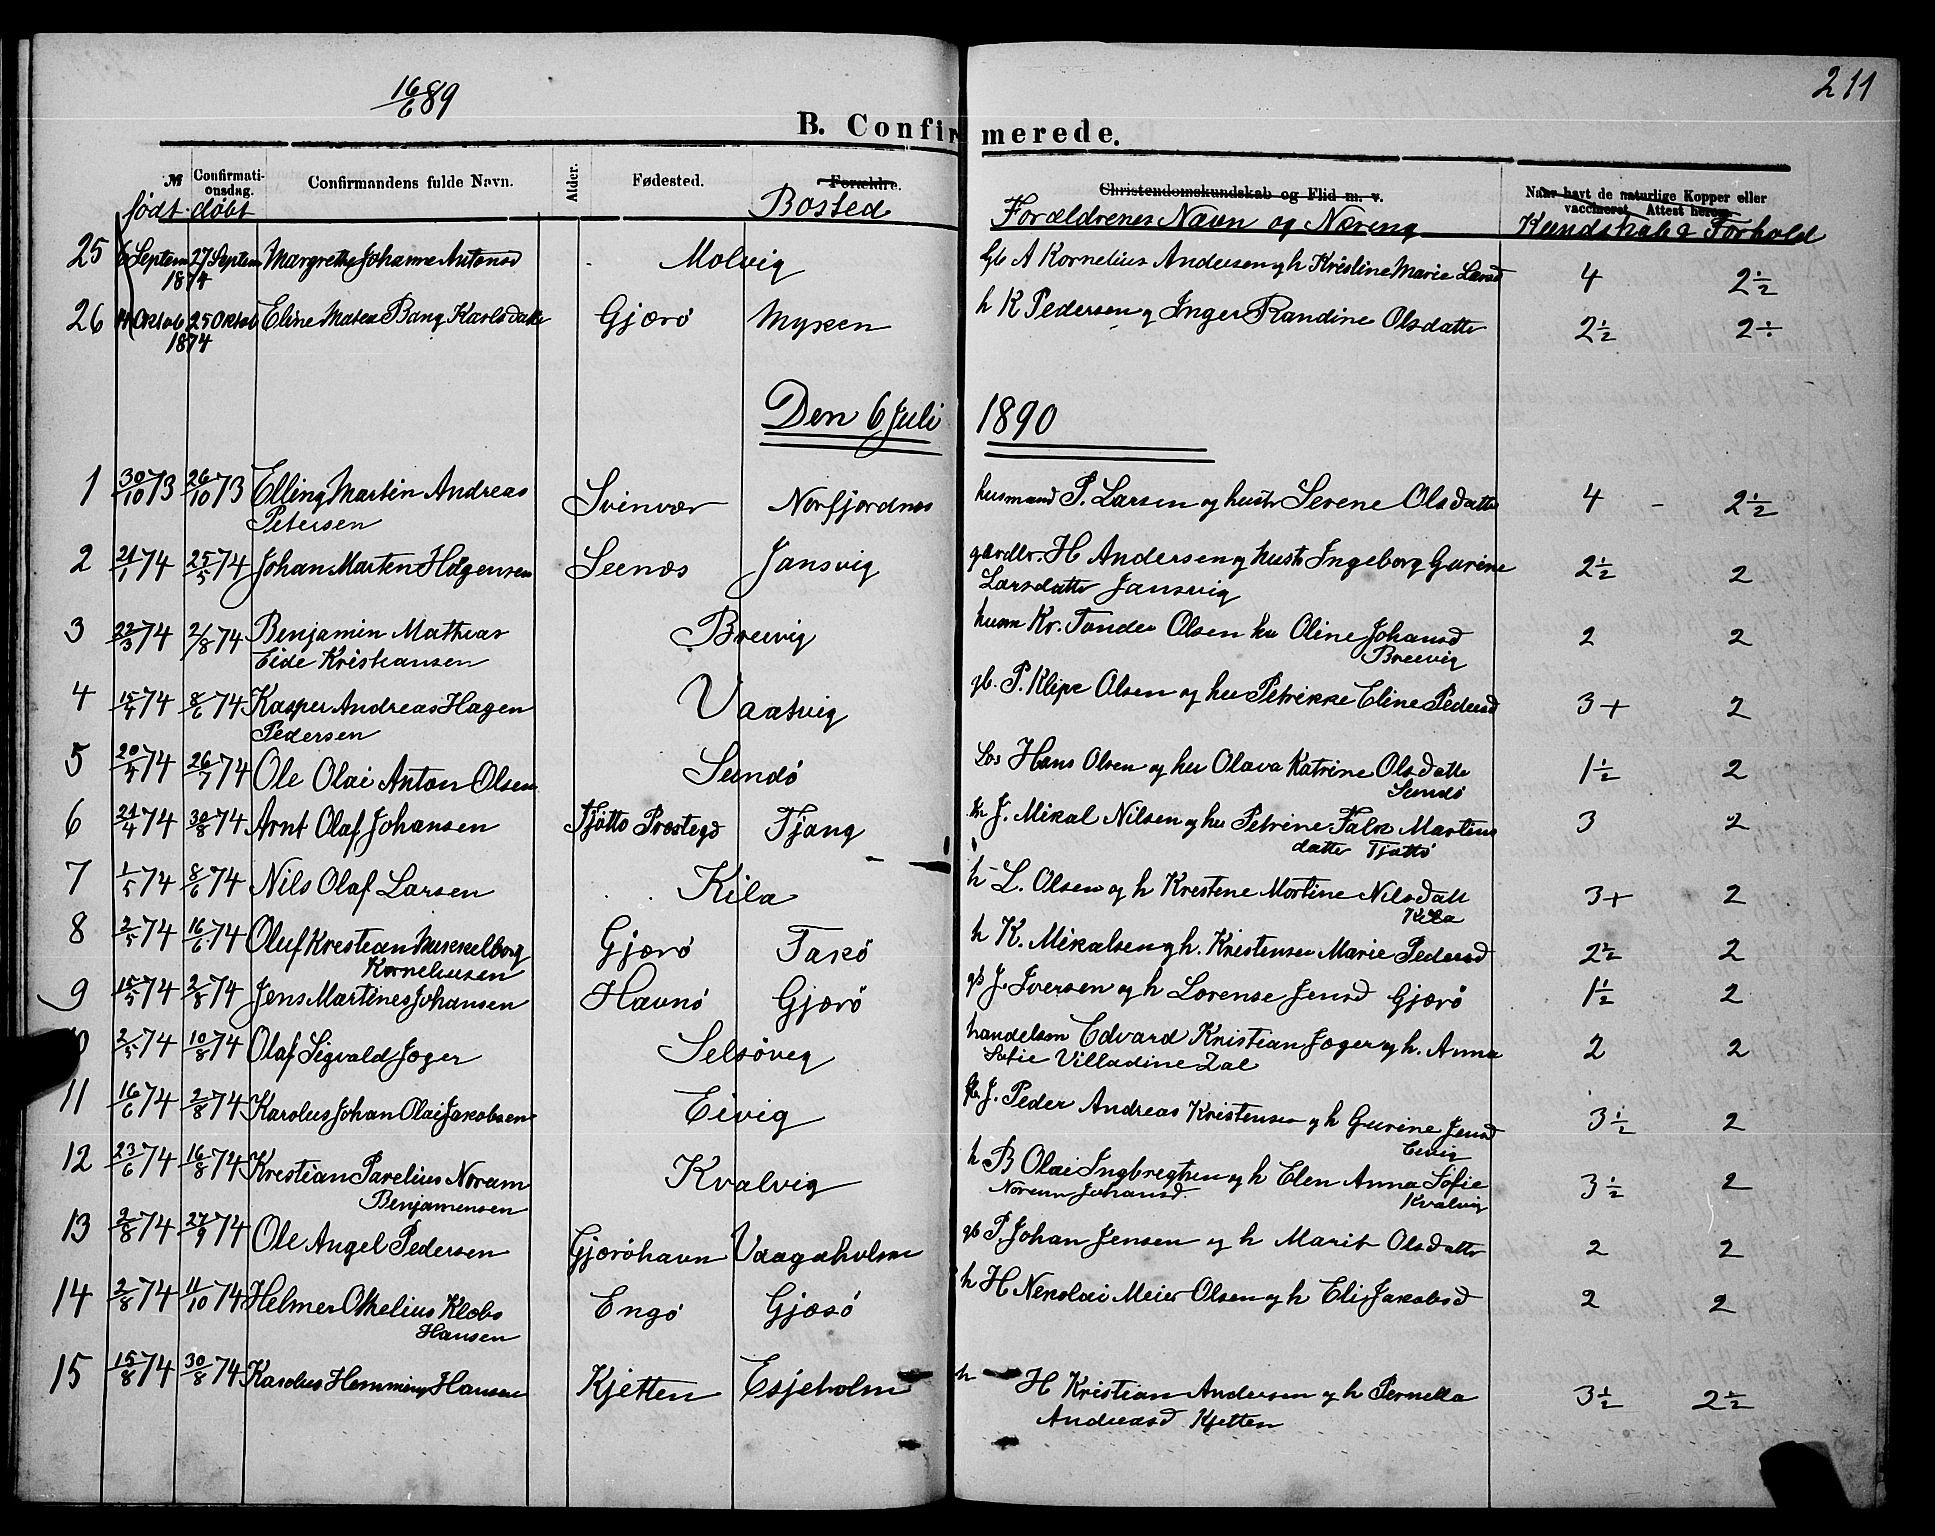 16/6 89
211
B. Confirmerede.
№ Confirmati-onsdag. Confirmandens fulde Navn. Alder. Fødested. Forældre. Christendomskundskab og Flid m. v. Naar havt de naturlige Kopper eller vaccineret. Attest herom.
født døbt Bosted Forældrenes Navn og Næring Kundskab & Forhold
25 6 Septem 27 Septem Margrethe Johanne Antonsd Molvig Gb A Kornelius Andersen og h Kristine Marie Larsd 4 2½
1874
26 4 Oktob 25 Oktob Eline Matea Bang Karlsdatte Gjærø Myken h K Pedersen og Inger Randine Olsdatte 2½ 2÷
1874
Den 6 Juli 1890
1 30/10 73 26/10 73 Elling Martin Andreas Svinvær Norfjordnes husmand P. Larsen og hustr Serene Olsdatte 4 - 2½
Petersen
2 21/1 74 25/5 74 Johan Marten Hagensen Seenæs Jansvig gardbr. H Andersen og hustr Ingeborg Gurine 2½ 2
Larsdatte Jansvig
3 22/3 74 2/8 74 Benjamin Mathias Breivig husm Kr. Tander Olsen hu Oline Johansd 2 2
Eide Kristiansen Breivig
4 15/4 74 8/6 74 Kasper Andreas Hagen Vaatvig gb. P. Klipe Olsen og hu Petrikke Eline Pedersd 3+ 2
Pedersen
5 20/4 74 26/7 74 Ole Olai Anton Olsen Sundø Los Hans Olsen og hu Olava Katrine Olsdatte 1½ 2
Sundø
6 21/4 74 30/8 74 Arnt Olaf Johansen Tjøtto Præstegd Tjong h J. Mikal Nilsen og hu Petrine Falk Martins 3 2
datte Tjøttø
7 1/5 74 8/6 74 Nils Olaf Larsen Kila h L. Olsen og h Krestene Martine Nilsdatt 3+ 2
Kila
8 2/5 74 16/6 74 Oluf Krestian Mikkelborg Gjærø Taxø h K. Mikalsen og h. Kristense Marie Pedersd 2½ 2
Korneliusen
9 15/5 74 2/8 74 Jens Martines Johansen Havnø Gjærø gb J. Iversen og h Lorense Jensd Gjærø 1½ 2
0 2/5 74 10/8 74 Olaf Sigvald Jæger Selsøvig handelsm Edvard Kristian Jæger og h. Anna 2 2
Sofie Villadine Zal
11 16/6 74 2/8 74 Karolus Johan Olai Jakobsen Eivig J. Peder Andreas Kristensen og h Gurine Jensd 3½ 2
Eivig
12 23/6 74 16/8 74 Krestian Parelius Norum Kvalvig h B Olai Ingbregtsen og h Elen Anna Sofie 3½ 2
Benjamensen Norum Johansd Kvalvig
13 2/8 74 27/9 74 Ole Angel Pedersen Gjærøhavn Vaagaholm gb P. Johan Jensen og h Marit Olsdatte 2 2
14 2/8 74 11/10 74 Helmer Othelius Klæbo Engø Gjæsø h H Nikolai Meier Olsen og h Eli Jakobsd 2 2
Hansen
15 15/8 74 30/8 74 Karolus Hemming Hansen Kjetten Esjeholm h H Kristian Andersen og h Pernella 3½ 2½
Andreasd Kjetten